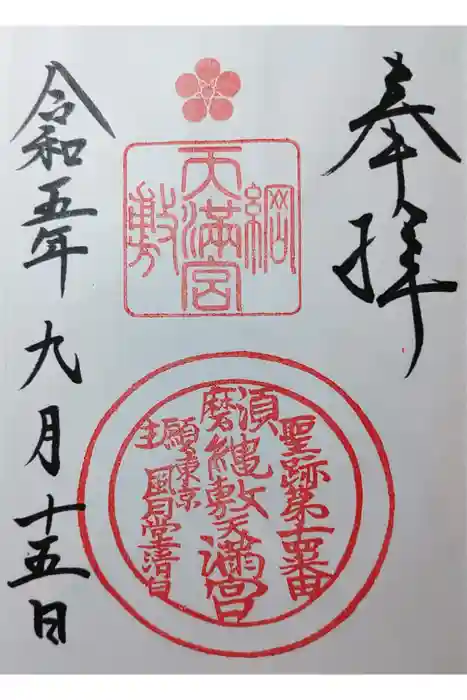 奉拝
綱
天満宮
敷
聖跡第十二番
須磨
綱敷天満宮
願主
東京
風月堂清白
令和五年九月十五日